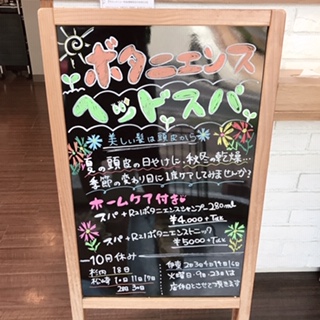 ボタニエンス
ヘッドスパ
美しい髪は頭皮から
夏の頭皮の日やけに、秋冬の乾燥…
季節の変わり目に1度ケアしてみませんか?
ホームケア付き
スパ + R21ボタニエンスシャンプー280ml
¥4.000+Tax
スパ + R21ボタニエンストニック
¥5000+Tax
10月休み
18日
松崎 10日11日17日
火曜日・9日・23日は
店休日とさせて頂きます